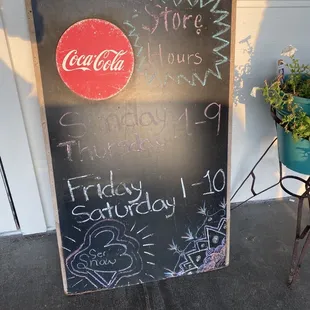 Store
Hours
Coca-Cola
Sunday 1-9
Thursday
Friday 1-10
Saturday